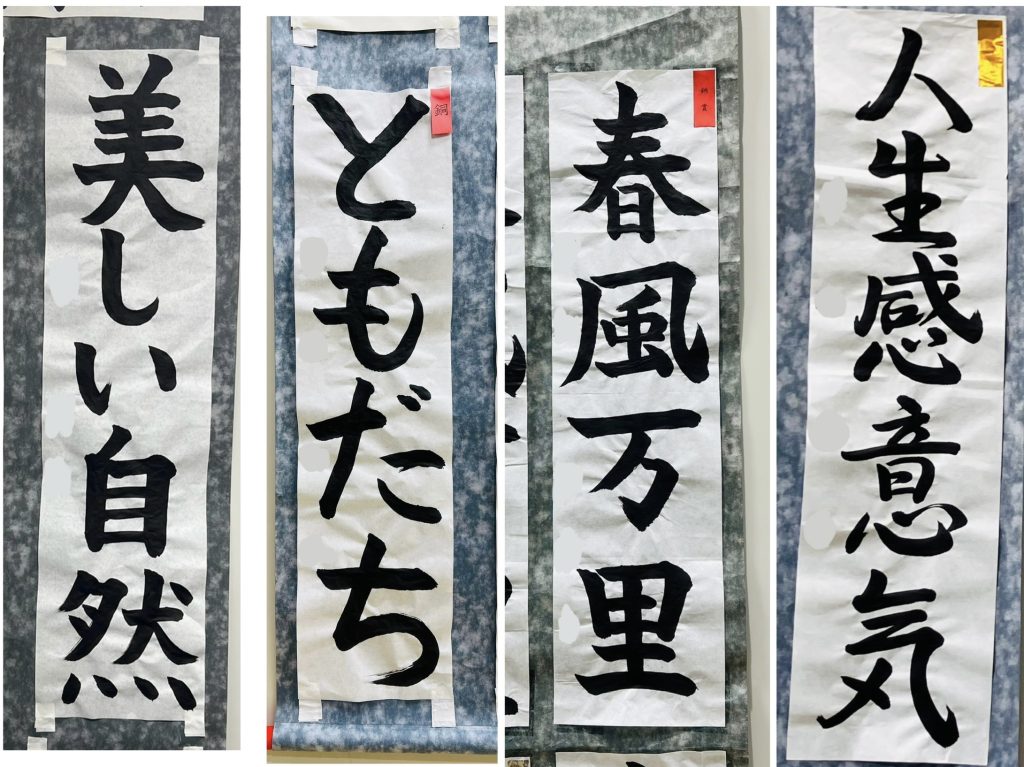 美しい自然
ともだち
銅
春風万里
銅賞
人生感意気